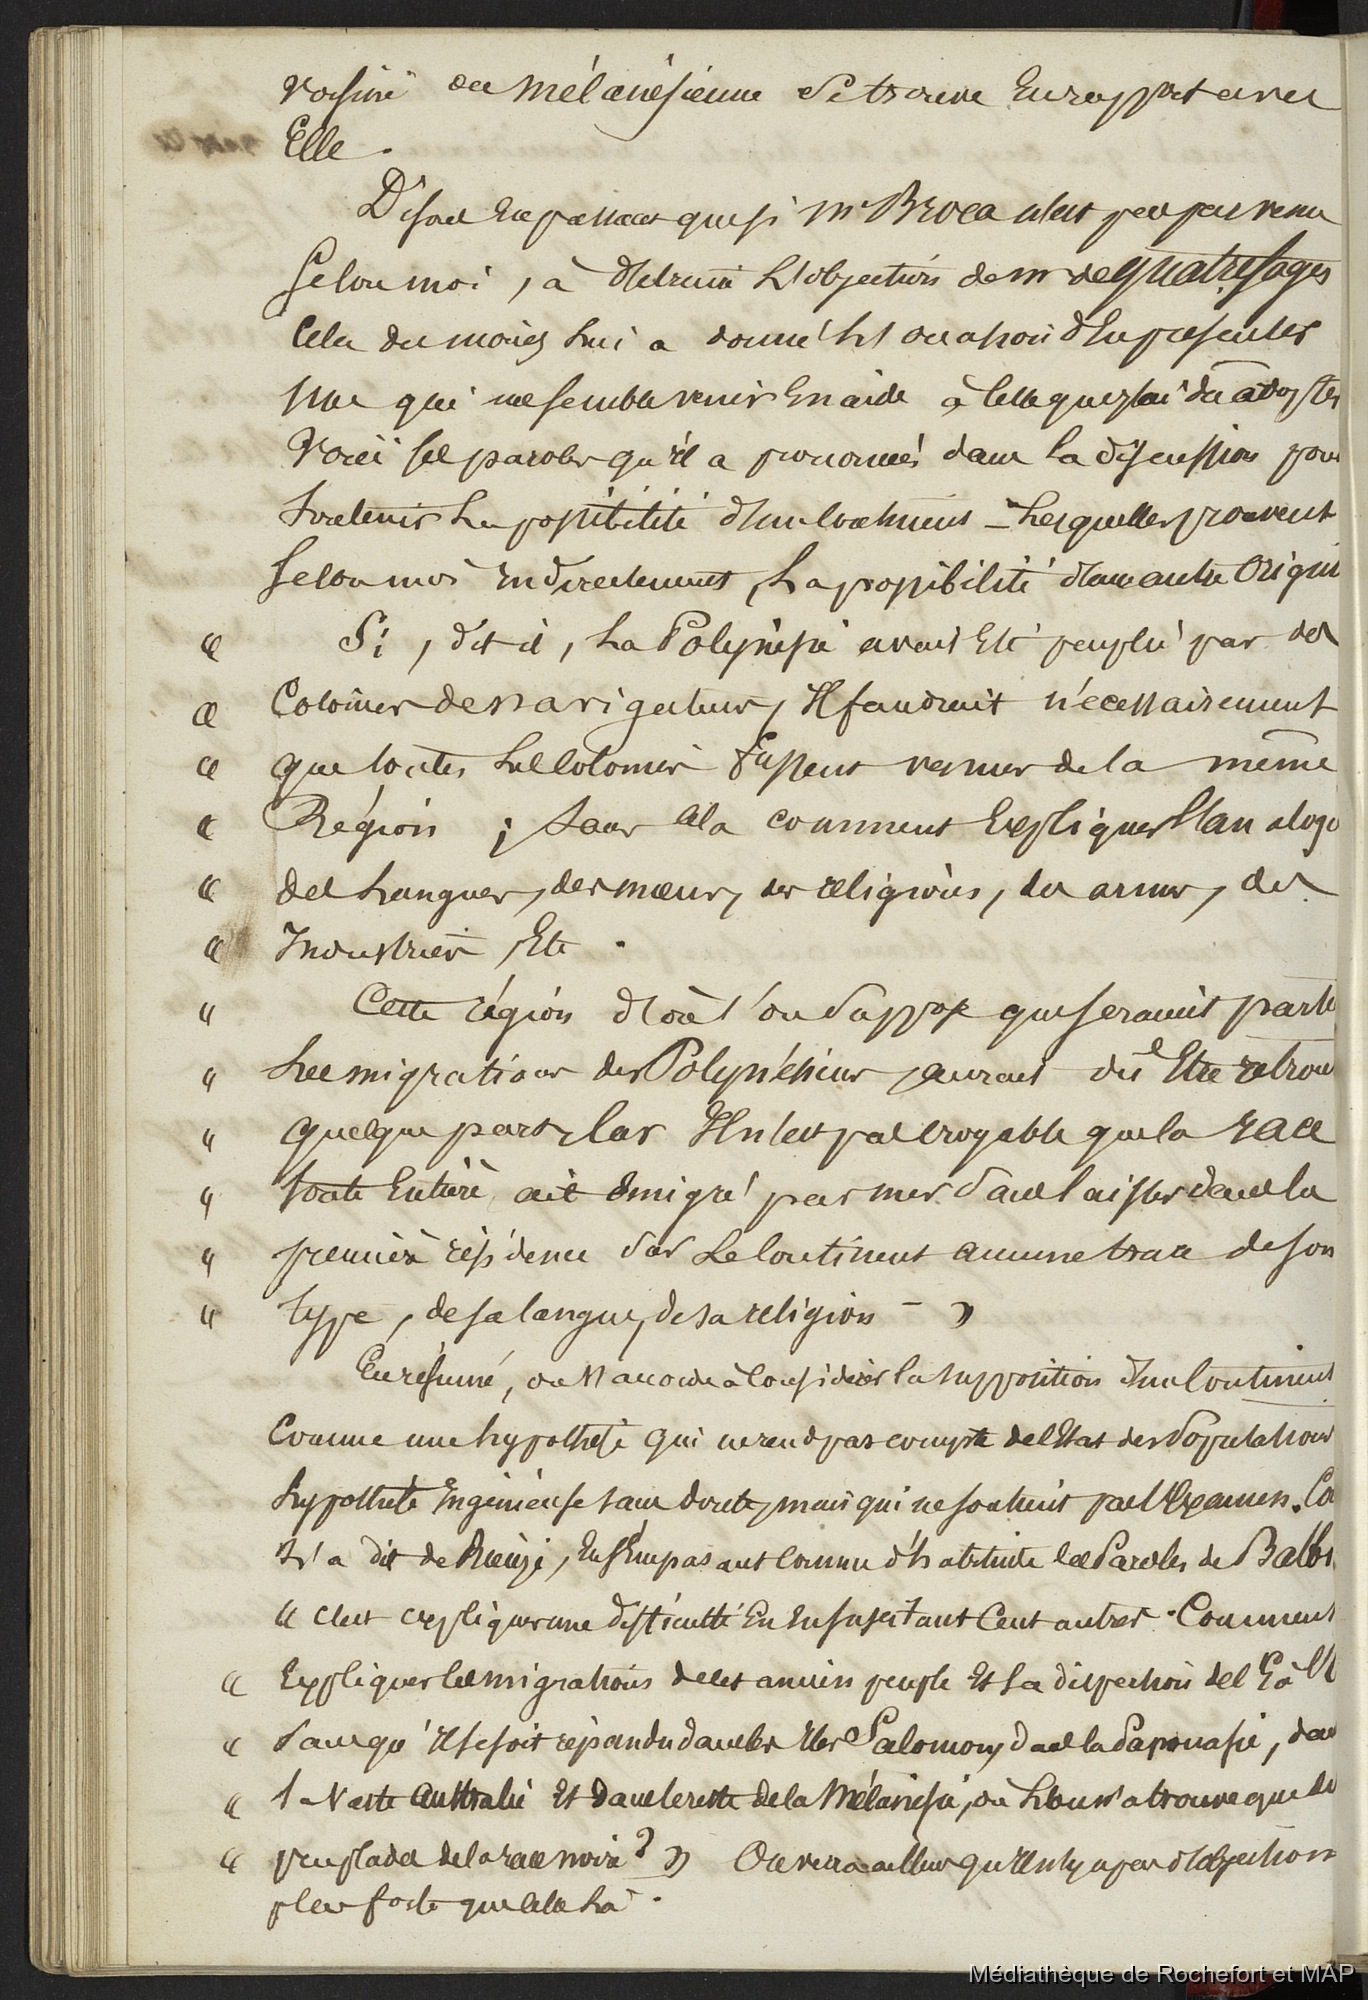 voisine ou mélanésienne se trouve en rapport avec
Elle.
Disons en passant que si Mr Broca n'est pas parvenu
selon moi, à détruire l'objection de Mr de Quatrefages
cela du moins lui a donné l'occasion d'en présenter
une qui me semble venir en aide à celle que j'ai dû adopter
Voici les paroles qu'il a prononcées dans la discussion pour
soutenir la possibilité d'un continent - lesquelles prouvent
selon moi indirectement, la possibilité d'une autre origine
« Si, dit-il, la Polynésie avait été peuplée par des
« Colonies de navigateurs, il faudrait nécessairement
« que toutes les colonies fussent venues de la même
« Région ; sans cela comment expliquer l'analogie
« des langues, des mœurs, des religions, des armes, des
« Industries, Etc.
« Cette région d'où l'on suppose que seraient partis
« les migrations des Polynésiens, aurait dû être retrouvée
« quelque part, car il n'est pas croyable que la race
« toute entière ait émigré par mer sans laisser dans la
« première résidence sur le continent aucune trace de son
« type, de sa langue, de sa religion - »
En résumé, on s'accorde à considérer la supposition d'un continent
comme une hypothèse qui ne rend pas compte de l'état des populations
hypothèse ingénieuse sans doute, mais qui ne soutient pas l'examen. Ca
l'a dit de Rienzi, en s'emparant comme d'habitude des paroles de Balbi
« c'est expliquer une difficulté en en suscitant cent autres. Comment
« Expliquer les migrations de cet ancien peuple et sa dispersion de l'E à l'O
« sans qu'il se soit répandu dans les îles Salomon, dans la Papouasie, dans
« la vaste Australie et dans le reste de la Mélanésie, où l'on n'a trouvé que des
« peuplades de la race noire ? » On verra ailleurs qu'il n'y a peu d'objection
plus forte que celle là.
Médiathèque de Rochefort et MAP